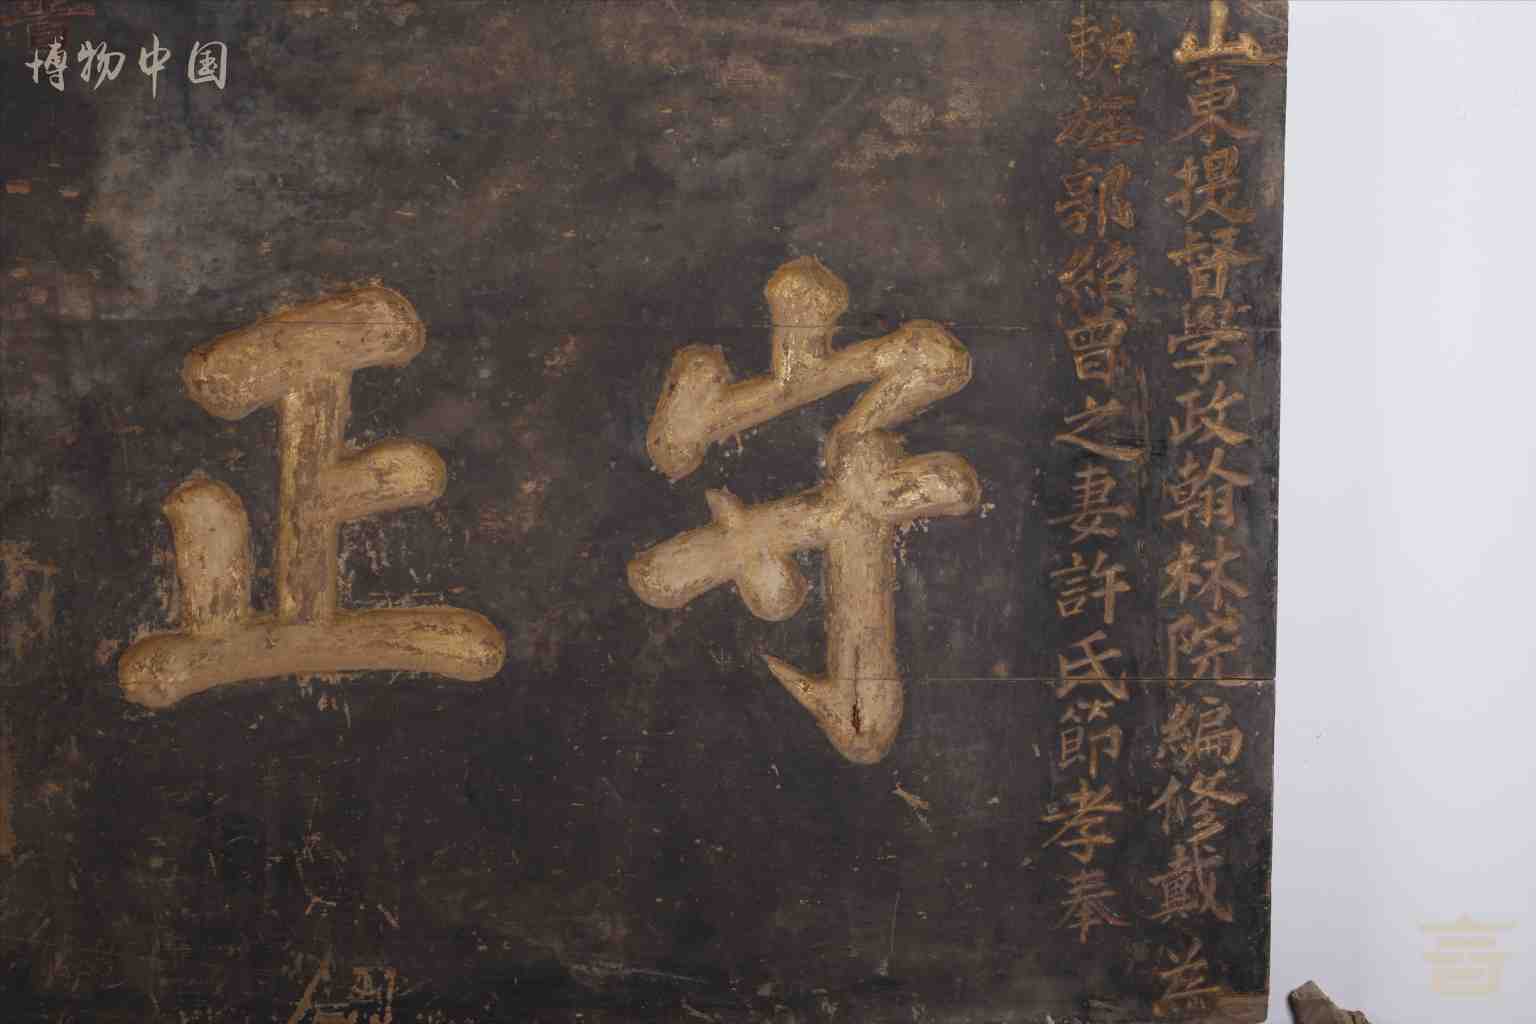 山東提督學政翰林院編修戴為
勅旌郭繼曾之妻許氏節孝奉
守正
博物中国